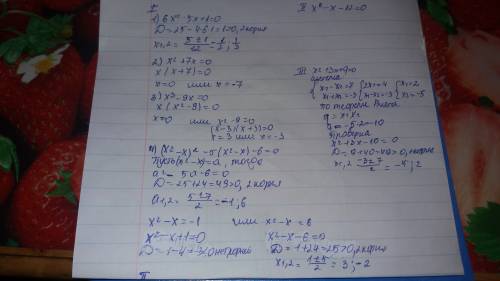 I
1) 6x²-5x+1=0
D=25-4·6·1=1>0, 2 корня
x1,2 = 5±1/12 = 1/2; 1/3
2) x²+7x=0
x(x+7)=0
x=0 или x=-7
3) x³-9x=0
x(x²-9)=0
x=0 или x²-9=0
(x-3)(x+3)=0
x=3 или x=-3
4) (x²-x)²-5(x²-x)-6=0
Пусть (x²-x)=a, тогда
a²-5a-6=0
D=25+24=49>0, 2 корня
a1,2 = 5±7/2 = -1; 6
x²-x=-1 или x²-x=6
x²-x+1=0 x²-x-6=0
D=1-4=-3<0 нет корней D=1+24=25>0, 2 корня
x1,2 = 1±5/2 = 3; -2
II
II x²-x-12=0
III x²+3x+q=0
x1-x2=7
x1+x2=-3
2x1=4
x1-x2=
x1=2
x2=-5
по теореме Виета
q=x1·x2
q=-5·2=-10
Проверка
x²+3x-10=0
D=9+40=49>0, 2 корня
x1,2 = -3±7/2 = -5; 2